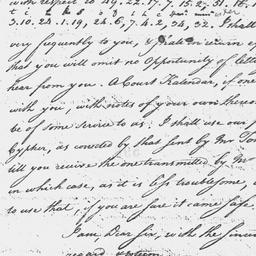 with respect to 49, 22. 17. 7. 15. 2. 31. 16.
3. 10. 24. 1. 19, 24. 6, 7. 4. 2. 34, 32. I shall
very frequently to you, & shall in return ex
that you will omit no Opportunity of letti
hear from you. A Court Kalendar, if one
with you, with notes of your own thereon
be of some service to us. I shall use our
Cypher, as corrected by that sent by Mr
till you receive the one transmitted by Mr
in which case, as it is less troublesome,
to use that, if you are sure it came safe.
I am, Dear Sir, with the sincere
regard